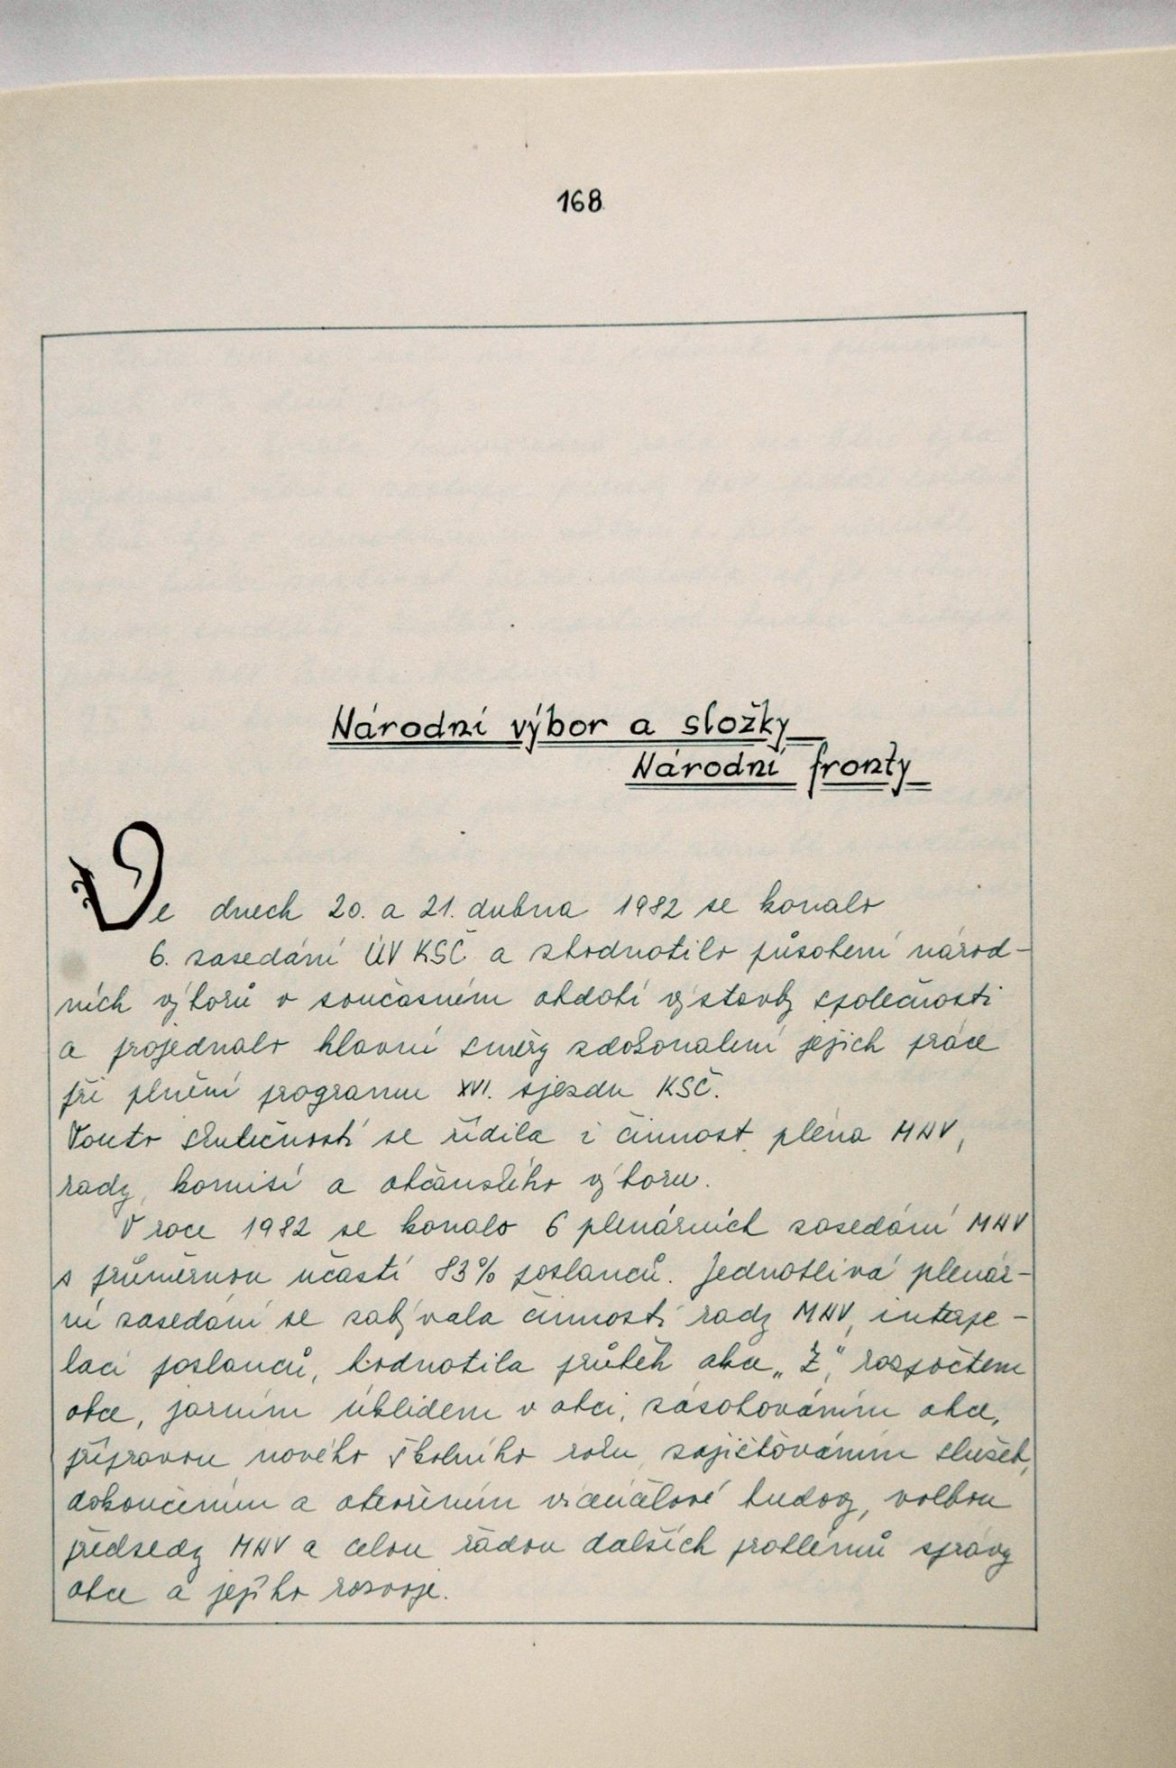 168
Národní výbor a složky
Národní fronty
Ve dnech 20. a 21. dubna 1982 se konalo
6. zasedání ÚV KSČ a zhodnotilo působení národ-
ních výborů v současném období výstavby společnosti
a projednalo hlavní směry zdokonalení jejich práce
při plnění programu XVI. sjezdu KSČ.
Touto skutečností se řídila i činnost pléna MNV,
rady, komisí a občanského výboru.
V roce 1982 se konalo 6 plenárních zasedání MNV
s průměrnou účastí 83% poslanců. Jednotlivá plenár-
ní zasedání se zabývala činností rady MNV, interpe-
lací poslanců, hodnotila průběh akce „Z", rozpočtem
obce, jarním úklidem v obci, zásobováním obce,
přípravou nového školního roku, zajišťováním služeb,
dokončením a otevřením víceúčelové budovy, volbou
předsedy MNV a celou řadou dalších problémů správy
obce a jejího rozvoje.